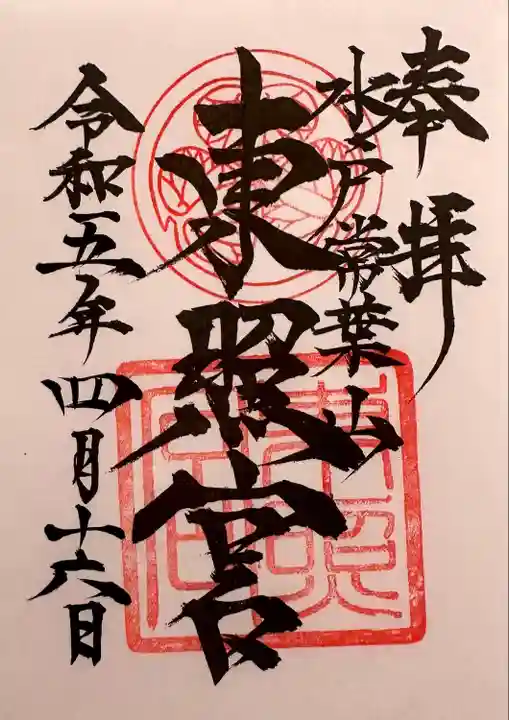 奉拝
水戸常葉山
東照宮
令和五年四月十六日
東照
宮印